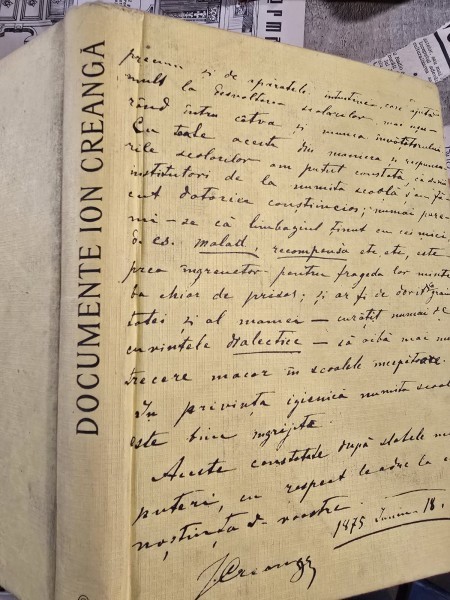 DOCUMENTE ION CREANGĂ
precum și de aparatele intuitive, care ajută
mult la desvoltarea scolarilor, mai ușu-
rând întru câtva și munca învățătorului.
Cu toate acestea din manera și respunsu-
rile scolarilor am putut constata că domnii
institutori de la numita scoală s'au fă-
cut datoria conștiincios; numai pare-
mi-se că limbagiul ținut cu cei mici
d. es. maladă, recompensa etc, etc, este
prea îngreuetor pentru frageda lor minte
ba chiar de prisos; și ar fi de dorit ca graiu
tatei și al mamei — curățit numai de
cuvintele dialectice — să aibă mai multă
trecere macar în scoalele începătoare.
În privința igienică numita scoală
este bine îngrijită.
Aceste constatate după slabele mele
puteri, cu respect le adre
noștiința d-voastre.
1875 Iunie 18.
I Creangă